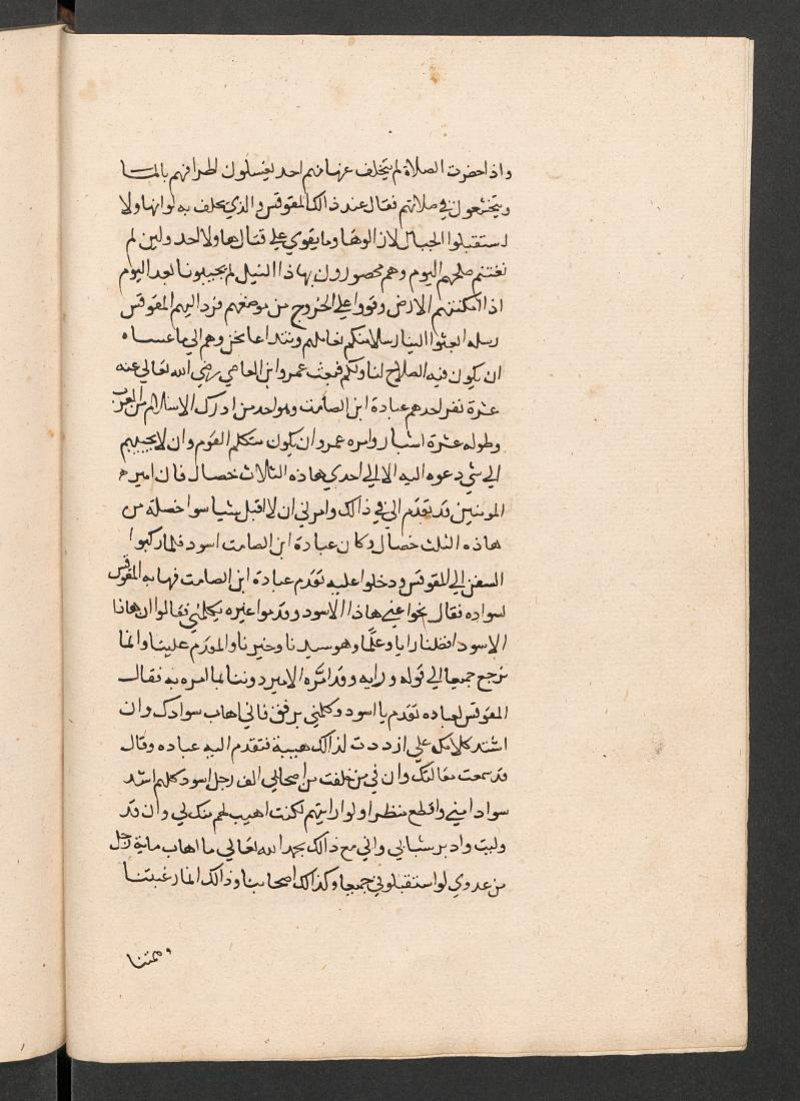 واذا حضرت الصلاة لم يتخلف عنها منهم احد يغسلون اطرافهم بالمـــا
ويتخشعون في صلاتهم فقال عند ذالك المقوقس والذي يحلف به لو انهاولا
استقبلوا الجبال لازالوها وما يقوي علي قتال هاولا احد ولين لم
نغتنم صلحهم اليوم وهم محصورون بهاذا النيل لم يجيبونا بعد اليوم
اذا امكنتهم الارض وقووا علي الخروج من موضعهم فرد اليهم المقوقس
رسله ابعثوا الينا رسلا منكم نعاملهم ونتداعا نحن وهم الي ما عساه
ان يكون فيه الصلاح لنا ولكم فبعث عمروا بن العاصي رضي الله تعالي عنه
عشرة نفر احدهم عبادة ابن الصامت وهو احد من ادرك الاسلام من العرب
وطوله عشرة اشبار وامره عمرو ان يكون متكلم القوم وان لا يجيبهم
الي شي دعوه اليه الا الي احدي هاذه الثلاث خصال فان امير
المومنين قد تقدم الي في ذالك وامرني ان لا اقبل شيا سوا خصلة من
هاذه الثلث خصال وكان عبادة ابن الصامت اسود فلما ركبوا
السفن الي المقوقس ودخلوا عليه تقدم عبادة ابن الصامت فهابه المقوقس
لسواده فقال نحوا عني هاذا الاسود وقدموا غيره يكلمني فقالوا ان هاذا
الاسود افضلنا رايا وعلما وهو سيدنا وخيرنا والمقدم علينا وانما
نرجع جميعا الي قوله ورايه وقد امره الامير دوننا بما امره به فقال
المقوقس لعباده تقدم يا اسود وكلمني برفق فاني اهاب سوادك وان
اشتد كلامك علي ازددت لذالك هيبة فتقدم اليه عباده وقال
قد سمعت مقالتك وان في من خلفت من اصحابي الف رجل اسود كلهم اشد
سوادا مني وافطع منظرا ولو رايتهم لكنت اهيب لهم منك لي وان قد
وليت وادبر شبابي واني مع ذالك بحمد الله تعالي ما اهاب ماية رجل
من عدوي لو استقبلوني جميعا وكذالك اصحابنا وذالك انما رغبتنا
وهمتنا